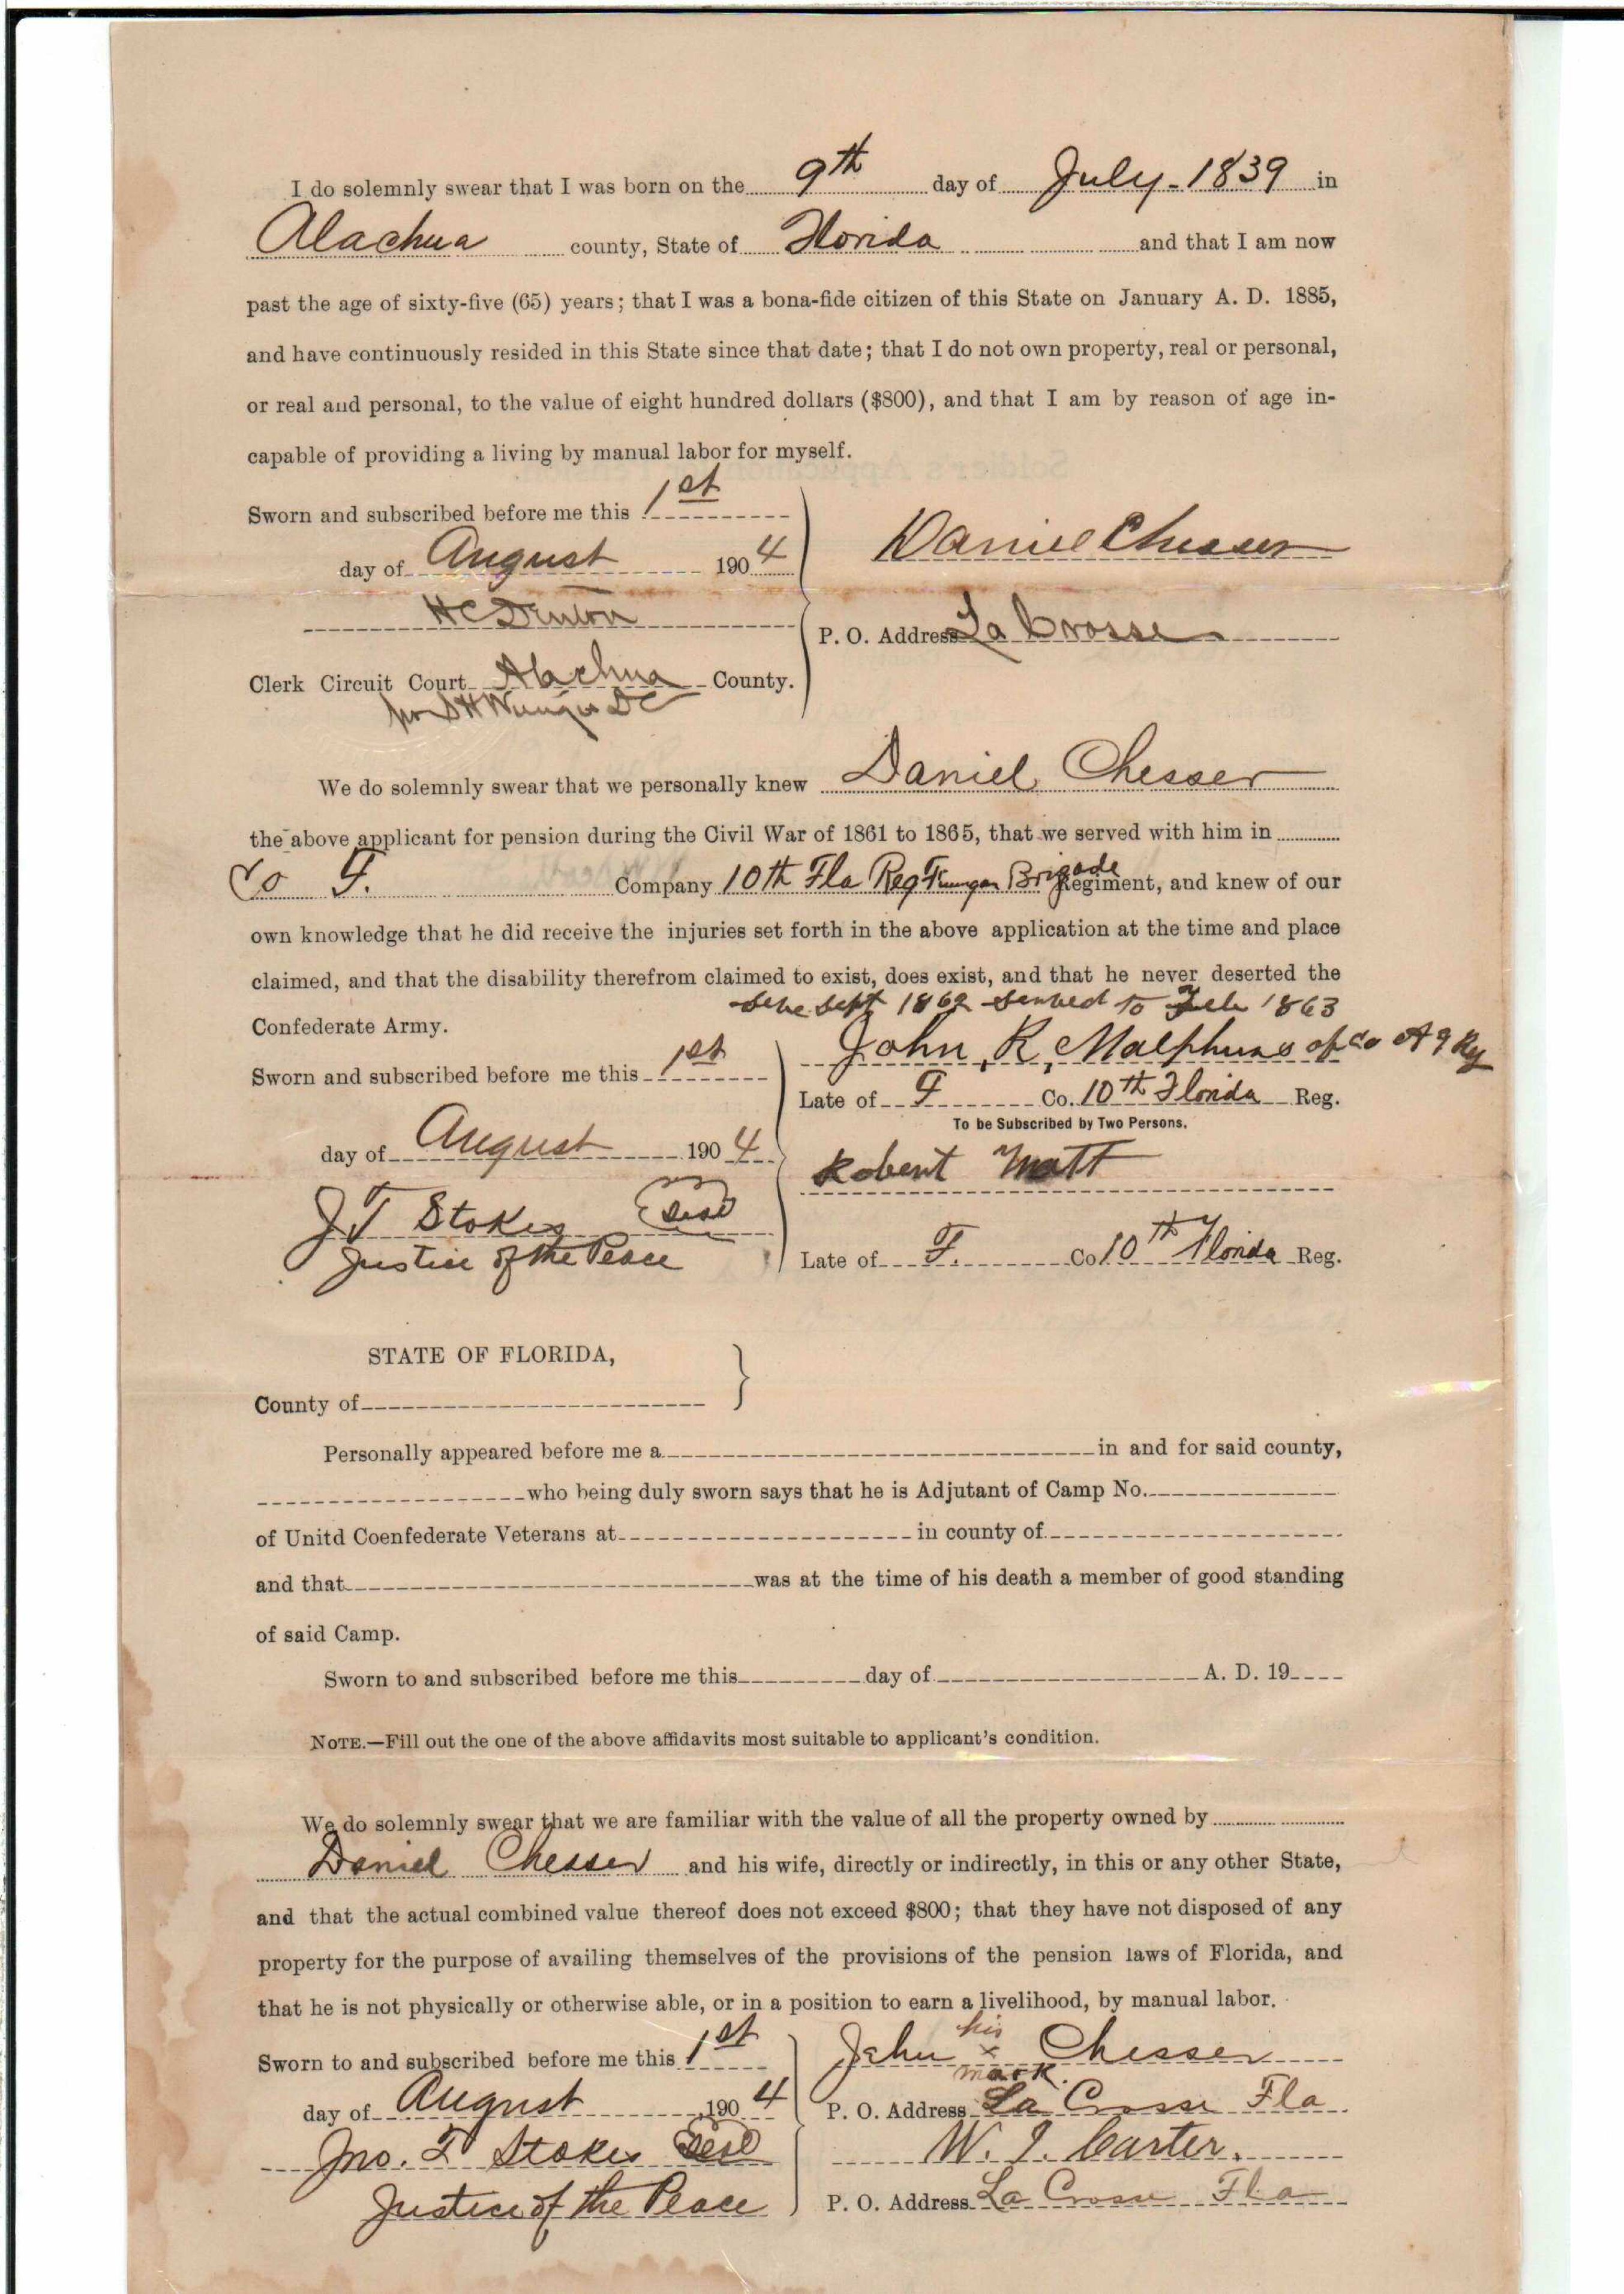 I do solemnly swear that I was born on the 9th day of July - 1839 in
Alachua county, State of Florida and that I am now
past the age of sixty-five (65) years; that I was a bona-fide citizen of this State on January A. D. 1885,
and have continuously resided in this State since that date; that I do not own property, real or personal,
or real and personal, to the value of eight hundred dollars ($800), and that I am by reason of age in-
capable of providing a living by manual labor for myself.
Sworn and subscribed before me this 1st
day of August 1904
Daniel Chesser
H C Denton
P. O. Address La Crosse
Clerk Circuit Court Alachua County.
We do solemnly swear that we personally knew Daniel Chesser
the above applicant for pension during the Civil War of 1861 to 1865, that we served with him in
Co F. Company 10th Fla Reg Brigade Regiment, and knew of our
own knowledge that he did receive the injuries set forth in the above application at the time and place
claimed, and that the disability therefrom claimed to exist, does exist, and that he never deserted the
Sept 1862 served to Feb 1863
Confederate Army.
John R, Malphurs of Co A 9 Reg
Sworn and subscribed before me this 1st
Late of F Co. 10th Florida Reg.
To be Subscribed by Two Persons.
day of August 1904
Robert Matt
J T Stokes Seal
Justice of the Peace
Late of F. Co 10th Florida Reg.
STATE OF FLORIDA,
County of
Personally appeared before me a in and for said county,
who being duly sworn says that he is Adjutant of Camp No.
of Unitd Coenfederate Veterans at in county of
and that was at the time of his death a member of good standing
of said Camp.
Sworn to and subscribed before me this day of A. D. 19
NOTE.—Fill out the one of the above affidavits most suitable to applicant's condition.
We do solemnly swear that we are familiar with the value of all the property owned by
Daniel Chesser and his wife, directly or indirectly, in this or any other State,
and that the actual combined value thereof does not exceed $800; that they have not disposed of any
property for the purpose of availing themselves of the provisions of the pension laws of Florida, and
that he is not physically or otherwise able, or in a position to earn a livelihood, by manual labor.
Sworn to and subscribed before me this 1st
John his x mark. Chesser
day of August 1904
P. O. Address La Crosse Fla
Jno. T Stokes Seal
W. J. Carter.
Justice of the Peace
P. O. Address La Crosse Fla